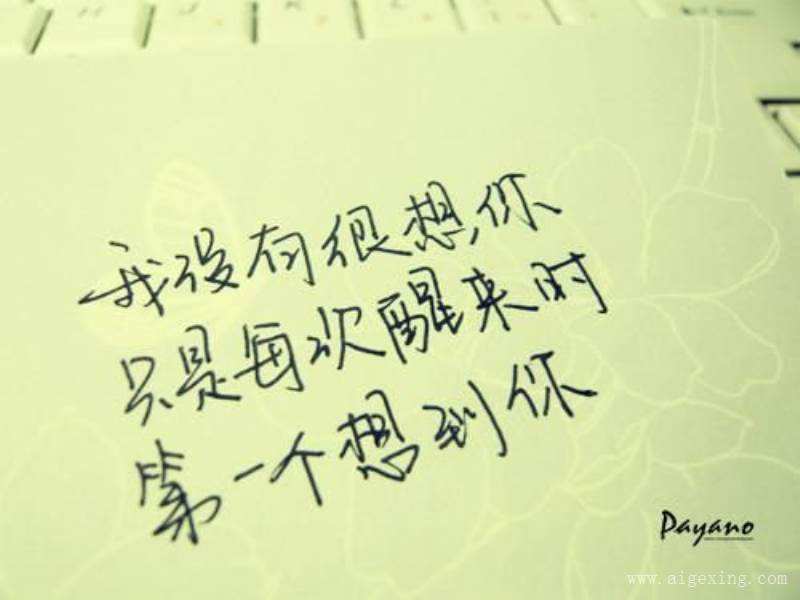 我没有很想你
只是每次醒来时
第一个想到你
Payano
www.aigexing.com